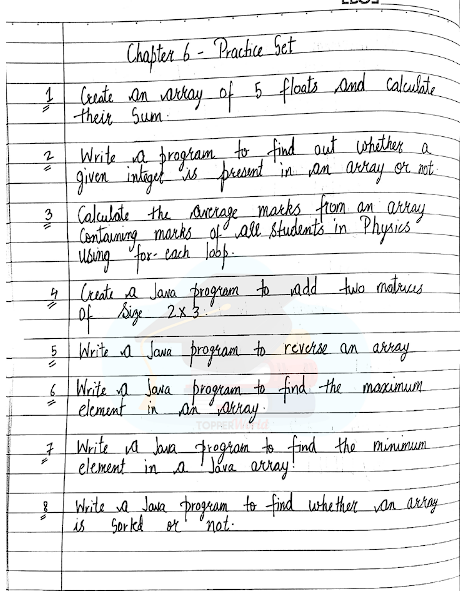 Chapter 6 - Practice Set
1 Create an array of 5 floats and calculate
their Sum.
2 Write a program to find out whether a
given integer is present in an array or not
3 Calculate the average marks from an array
Containing marks of all Students in Physics
using for-each loop.
4 Create a Java program to add two matrices
of Size 2x3.
5 Write a Java program to reverse an array
6 Write a Java program to find the maximum
element in an array.
TOPPERWORLD
7 Write a Java program to find the minimum
element in a Java array!
8 Write a Java program to find whether an array
is Sorted or not.